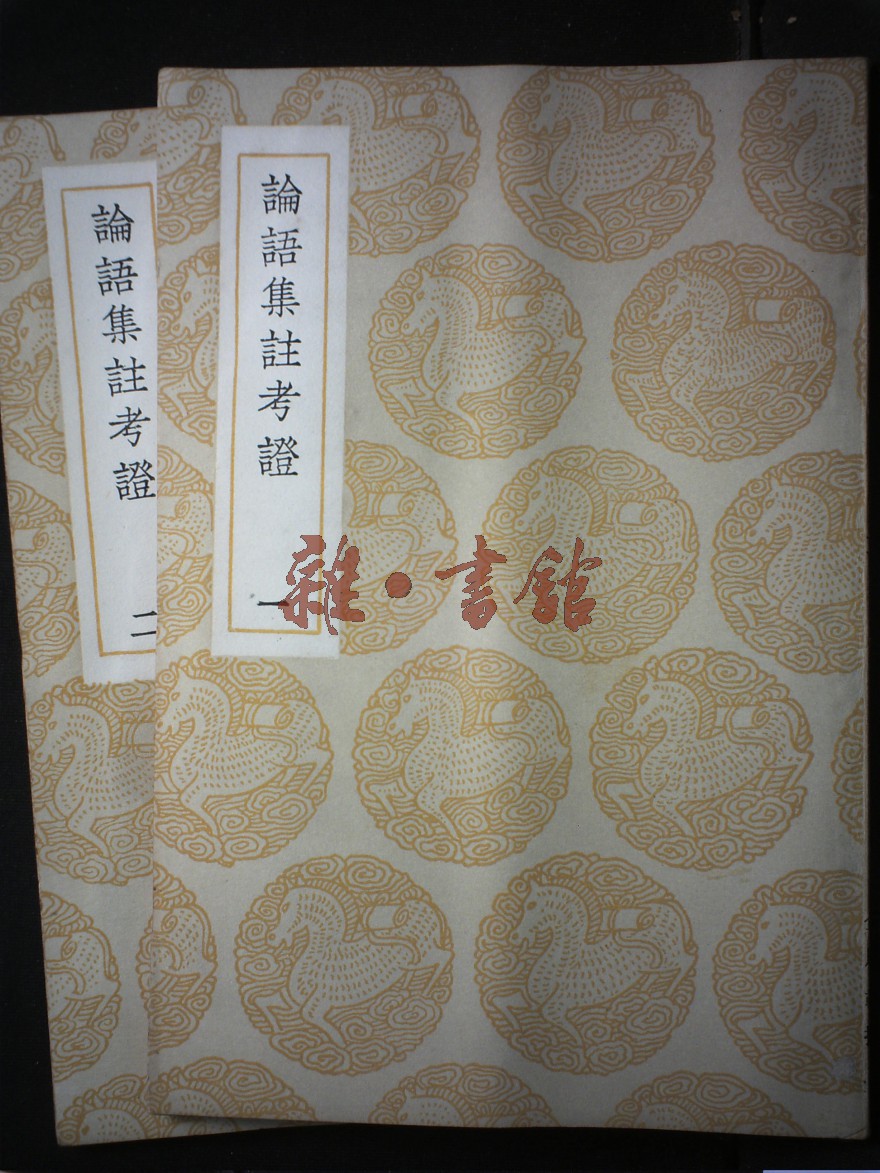 論語集註考證
一
論語集註考證
二
雜·書館